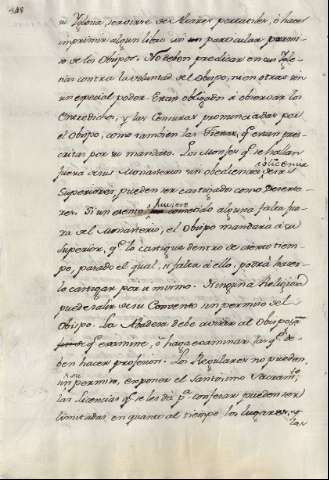 348
su Yglesia, servirse de Altares portatiles, ó hacer
imprimir algun libro sin su particular permi-
so de los Obispos. No deben predicar en sus Ygle-
sias contra la voluntad del Obispo, ni en otras sin
un especial poder. Estan obligados á observar los
Entredichos, y las Censuras pronunciadas por
el Obispo, como tambien las Fiestas, qe. estan pres-
critas por su mandato. Los Monjes qe. se hallan
fuera de su Monasterio sin obediencia de sus
Superiores pueden ser castigados como Deserto-
res. Si un exento hubiere cometido alguna falta fue-
ra del Monasterio, el Obispo mandará á su
Superior, qe. lo castigue dentro de cierto tiem-
po, pasado el qual, si falta á ello, podrá hacer-
lo castigar por si mismo. Ninguna Religiosa
puede salir de su Convento sin permiso del
Obispo. La Abadesa debe avisar al Obispo pa.
qe. examine, ó haga examinar las qe. de-
ben hacer profesion. Los Regulares no pueden
sin su permiso, exponer el Santisimo Sacramto.
las licencias qe. se les da pa. confesar pueden ser
limitadas, en quanto al tiempo, los lugares, y
las